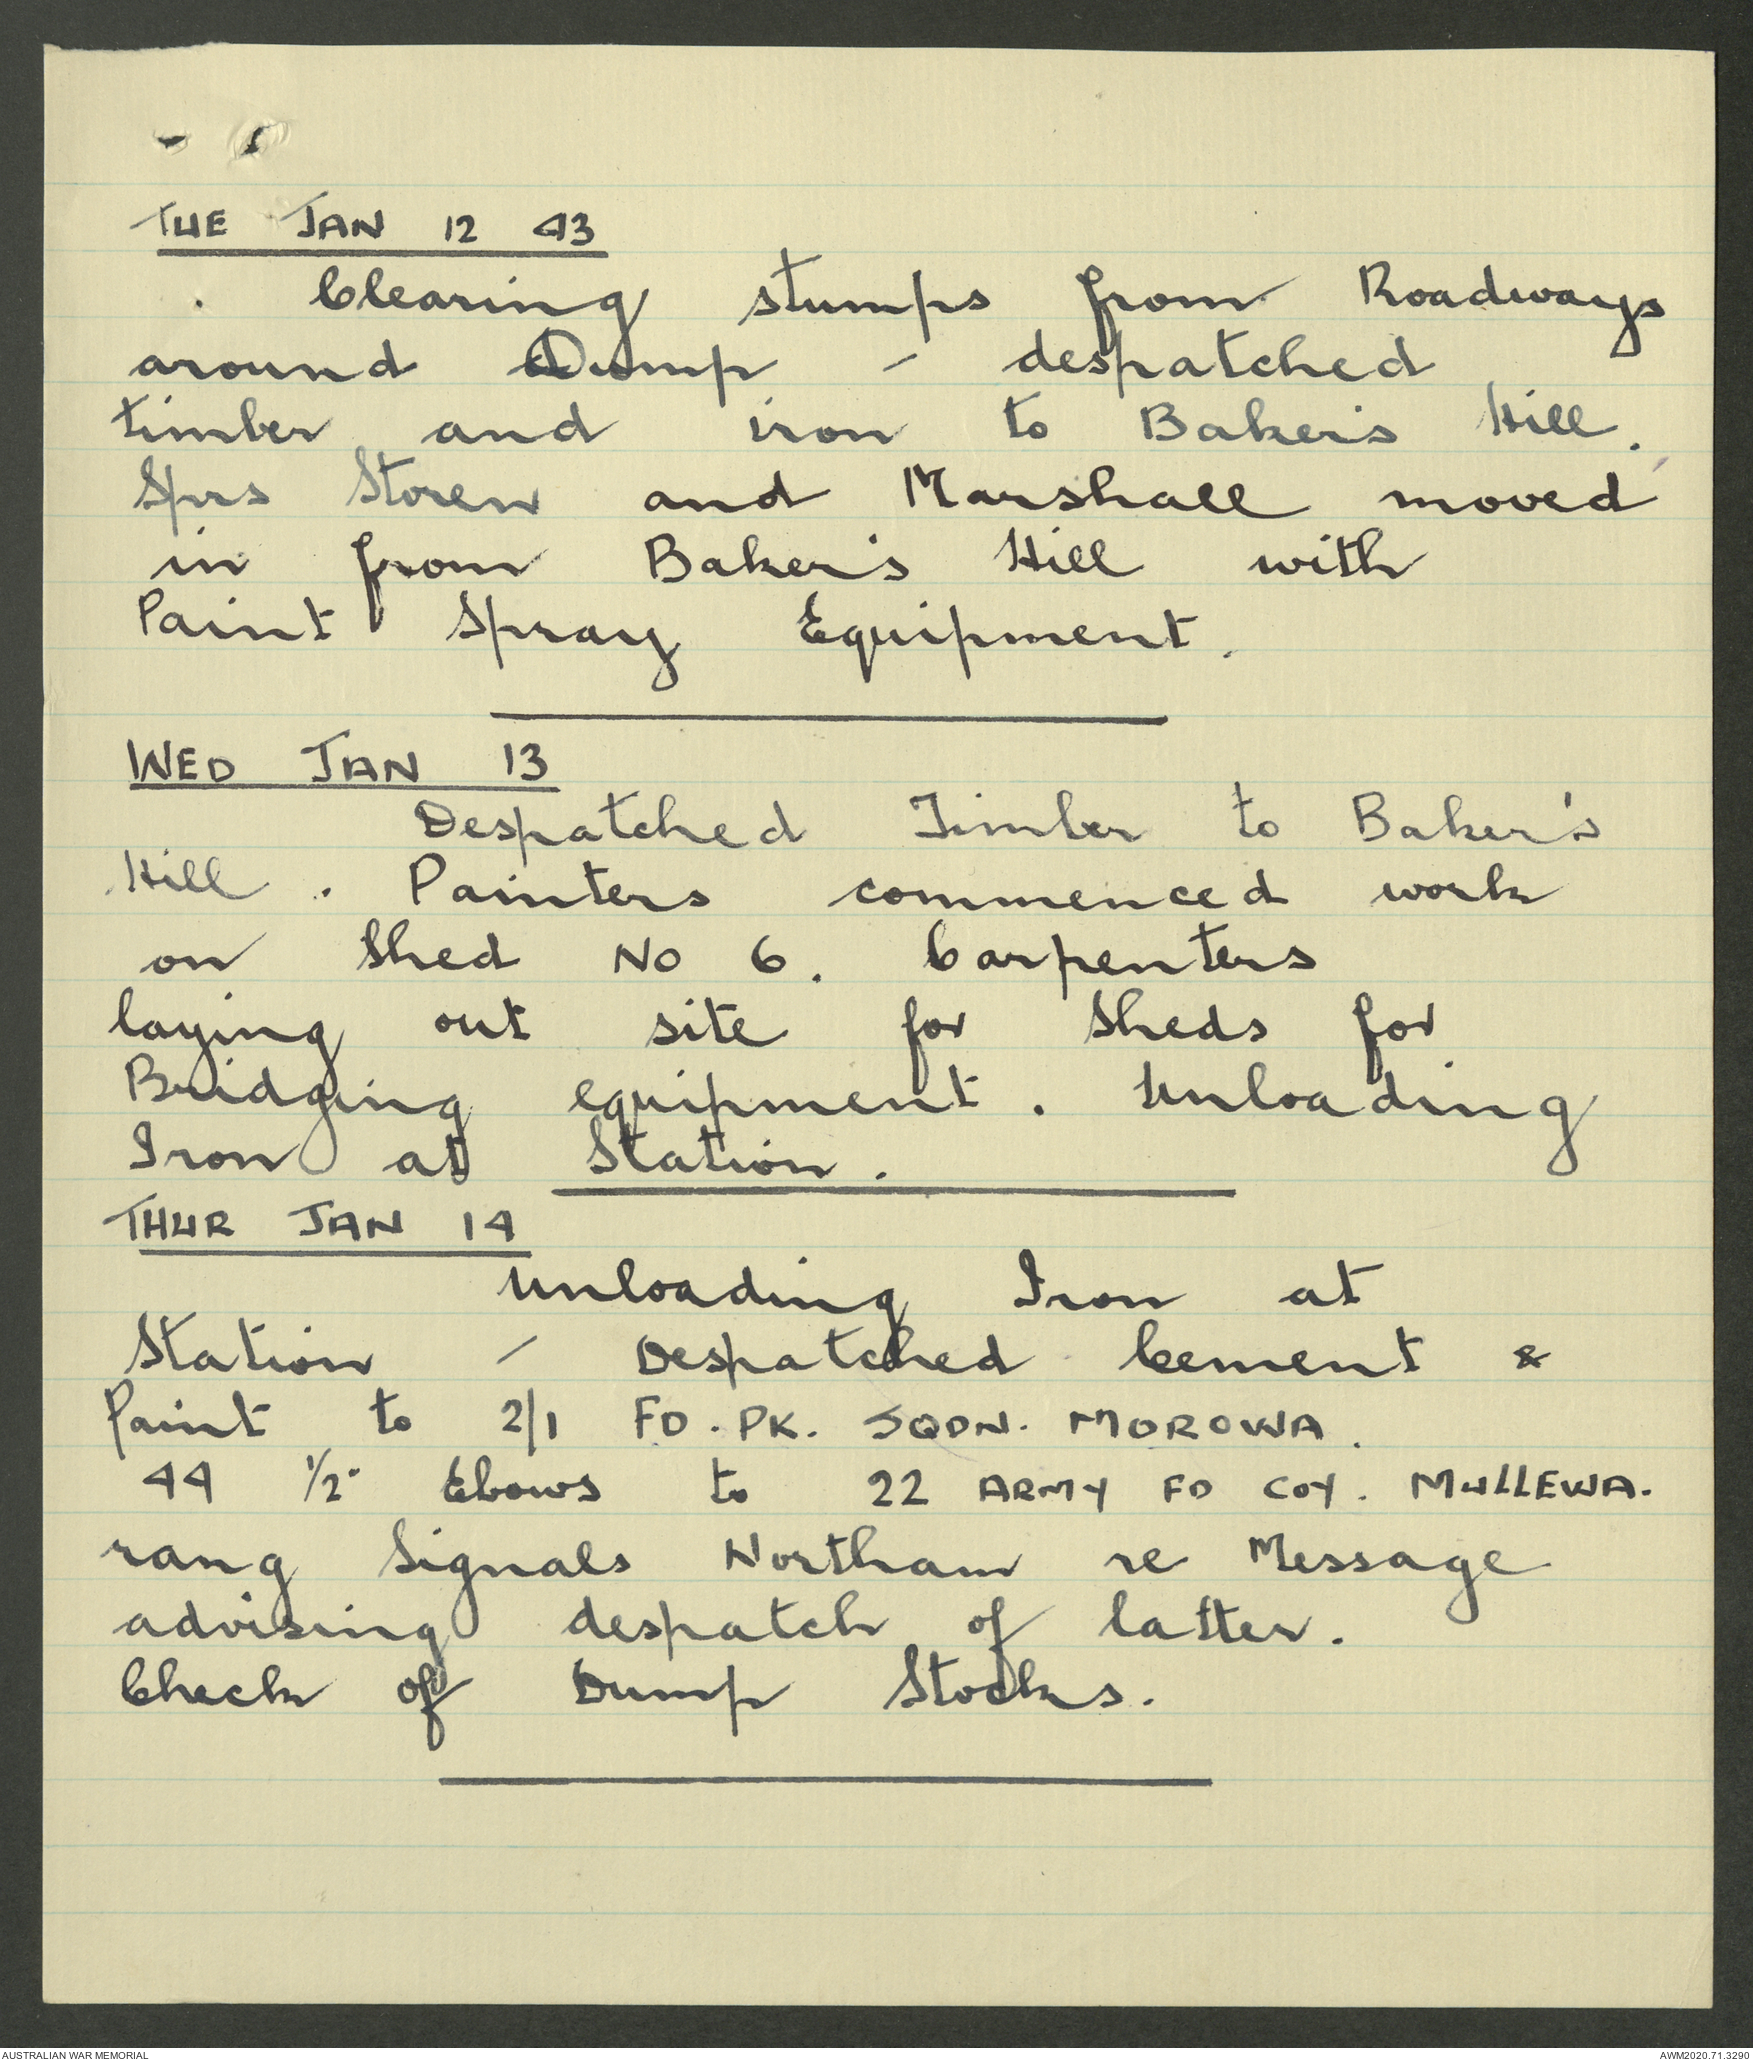 TUE JAN 12 43
Clearing stumps from Roadways
around Dump - despatched
timber and iron to Baker's Hill.
Sprs Storen and Marshall moved
in from Baker's Hill with
Paint Spray Equipment.
WED JAN 13
Despatched Timber to Baker's
Hill. Painters commenced work
on Shed No 6. Carpenters
laying out site for Sheds for
Bridging equipment. Unloading
Iron at Station.
THUR JAN 14
Unloading Iron at
Station - Despatched Cement &
Paint to 2/1 FD. PK. SQDN. MOROWA.
44 1/2" Ebows to 22 ARMY FD COY. MULLEWA.
rang Signals Northam re Message
advising despatch of latter.
Check of Dump Stocks.
AUSTRALIAN WAR MEMORIAL
AWM2020.71.3290